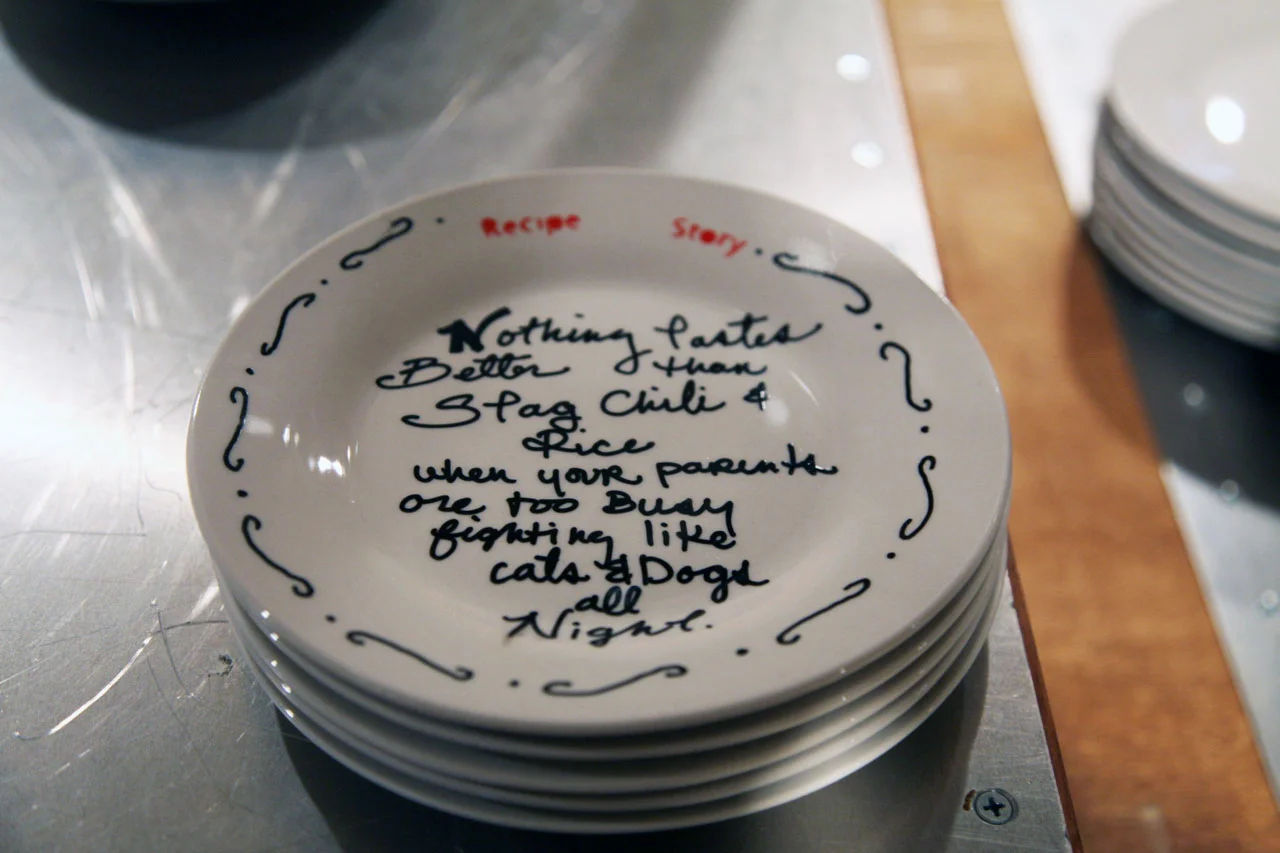 Recipe Story
Nothing Tastes
Better than
Stag Chili &
Rice
when your parents
are too Busy
fighting like
cats & Dogs
all
Night.